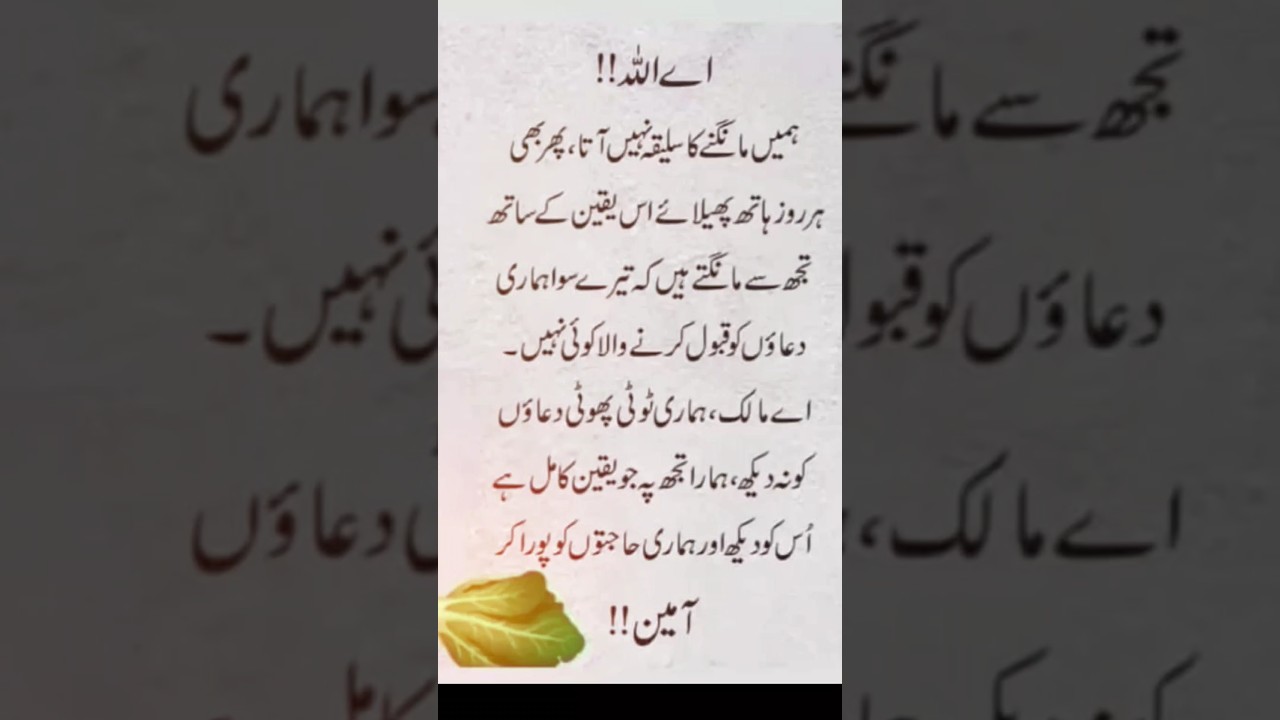 اے اللہ!!
ہمیں مانگنے کا سلیقہ نہیں آتا، پھر بھی
ہر روز ہاتھ پھیلائے اس یقین کے ساتھ
تجھ سے مانگتے ہیں کہ تیرے سوا ہماری
دعاؤں کو قبول کرنے والا کوئی نہیں۔
اے مالک، ہماری ٹوٹی پھوٹی دعاؤں
کو نہ دیکھ، ہمارا تجھ پہ جو یقین کامل ہے
اُس کو دیکھ اور ہماری حاجتوں کو پورا کر
آمین!!